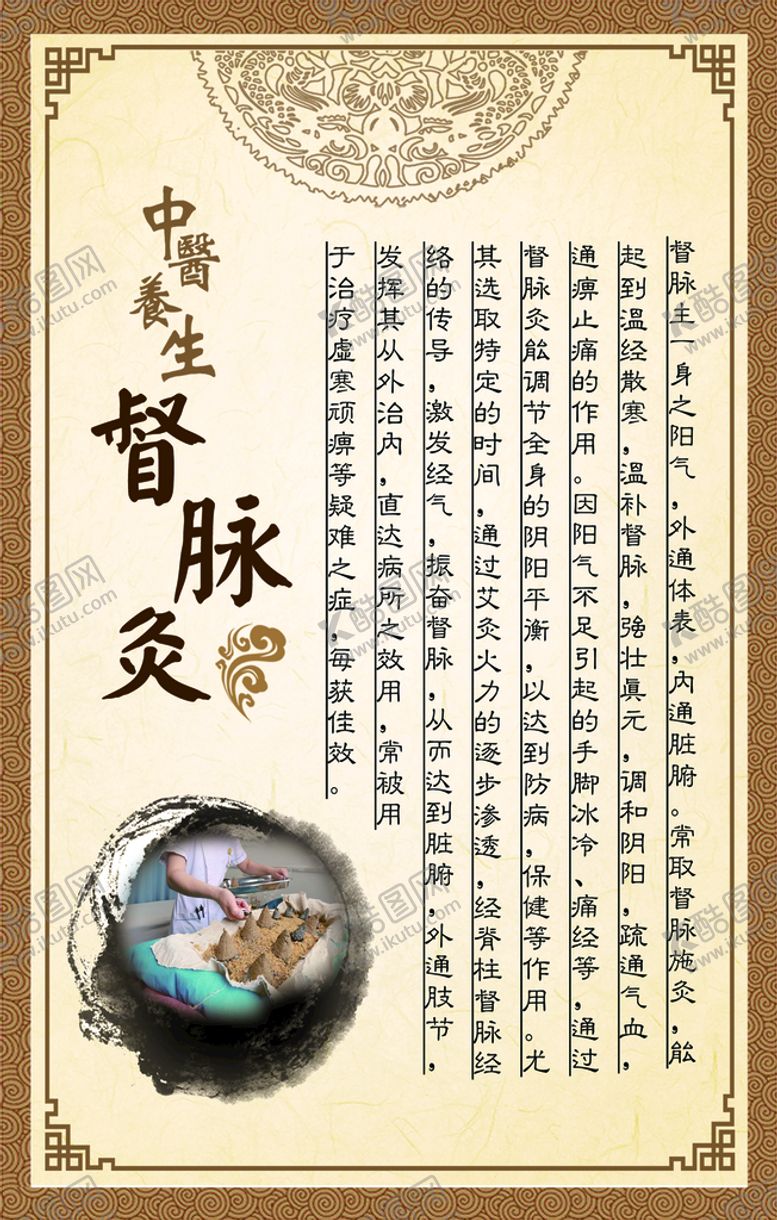 中醫養生
督脉灸
督脉主一身之阳气，外通体表，内通脏腑。常取督脉施灸，能
起到温经散寒，温补督脉，强壮真元，调和阴阳，疏通气血，
通痹止痛的作用。因阳气不足引起的手脚冰冷、痛经等，通过
督脉灸能调节全身的阴阳平衡，以达到防病，保健等作用。尤
其选取特定的时间，通过艾灸火力的逐步渗透，经脊柱督脉经
络的传导，激发经气，振奋督脉，从而达到脏腑，外通肢节，
发挥其从外治内，直达病所之效用，常被用
于治疗虚寒顽痹等疑难之症，每获佳效。
酷图网
www.ikutu.com